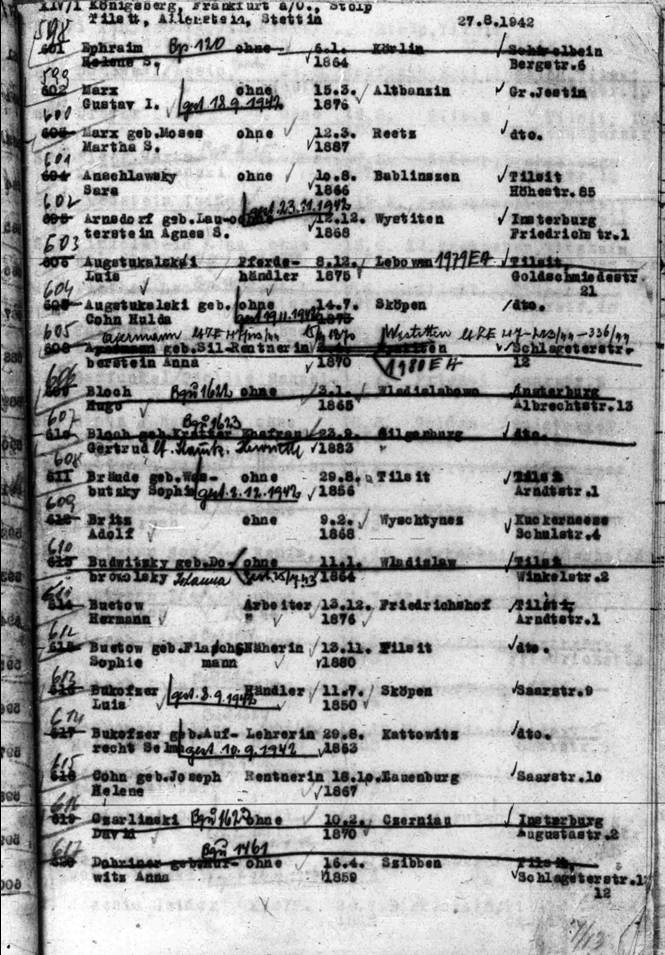 XIV/1 Königsberg, Frankfurt a/O., Stolp
Tilsit, Allenstein, Stettin 27.8.1942
598
601 Ephraim Bp. 120 ohne 6.1. Körlin Schivelbein
Helene S. 1864 Bergstr.6
599
602 Marx ohne 15.3. Altbanzin Gr.Jestin
Gustav I. gest 18.9.1942 1876
600
603 Marx geb.Moses ohne 12.3. Reetz dto.
Martha S. 1887
601
604 Anschlawsky ohne 10.8. Bablinszen Tilsit
Sara 1866 Höhestr.85
602 gest 23.11.1942
605 Arnsdorf geb.Lau- ohne 12.12. Wystiten Insterburg
terstein Agnes S. 1868 Friedrichstr.1
603
606 Augstukalski Pferde- 8.12. Lebowen 1979 EA Tilsit
Luis händler 1875 Goldschmiedestr.
21
604
607 Augstukalski geb. ohne 14.7. Sköpen dto.
Cohn Hulda gest 19.11.1942 1875
605
608 geb.Sil- Rentnerin Schlageterstr.
berstein Anna 1870 1980 EA 12
606
609 Bloch Bgü 1622 ohne 3.1. Wladislabowo Insterburg
Hugo 1865 Albrechtstr.13
607 Bgü 1623
610 Bloch geb. Ehefrau 23.9. Gilgenburg dto.
Gertrud 1883 "
608
611 Bräude geb.Was- ohne 29.8. Tilsit Tilsit
butzky Sophie gest. 2.12.1942 1856 Arndtstr.1
609
612 Britz ohne 9.2. Wyschtynes Kuckerneese
Adolf 1868 Schulstr.4
610
613 Budwitzky geb.Do- ohne 11.1. Wladislaw Tilsit
browolsky Johanna 1864 Winkelstr.2
611
614 Buetow Arbeiter 13.12. Friedrichshof Tilsit
Hermann " 1876 Arndtstr.1
612
615 Buetow geb.Flasch- Näherin 13.11. Tilsit dto.
Sophie mann 1880
613
616 Bukofzer Händler 11.7. Sköpen Saarstr.9
Luis gest. 8.9.1942 1850
614
617 Bukofzer geb.Auf- Lehrerin 29.8. Kattowitz dto.
recht Selma gest. 10.9.1942 1863
615
618 Cohn geb.Joseph Rentnerin 18.10. Lauenburg Saarstr.10
Helene 1867
616
619 Czarlinski ohne 10.2. Czerniau Insterburg
David 1870 Augustastr.2
617 Bgü 1461
620 Dobriner ohne 16.4. Szibben Tilsit
witz Anna 1859 Schlageterstr.
12